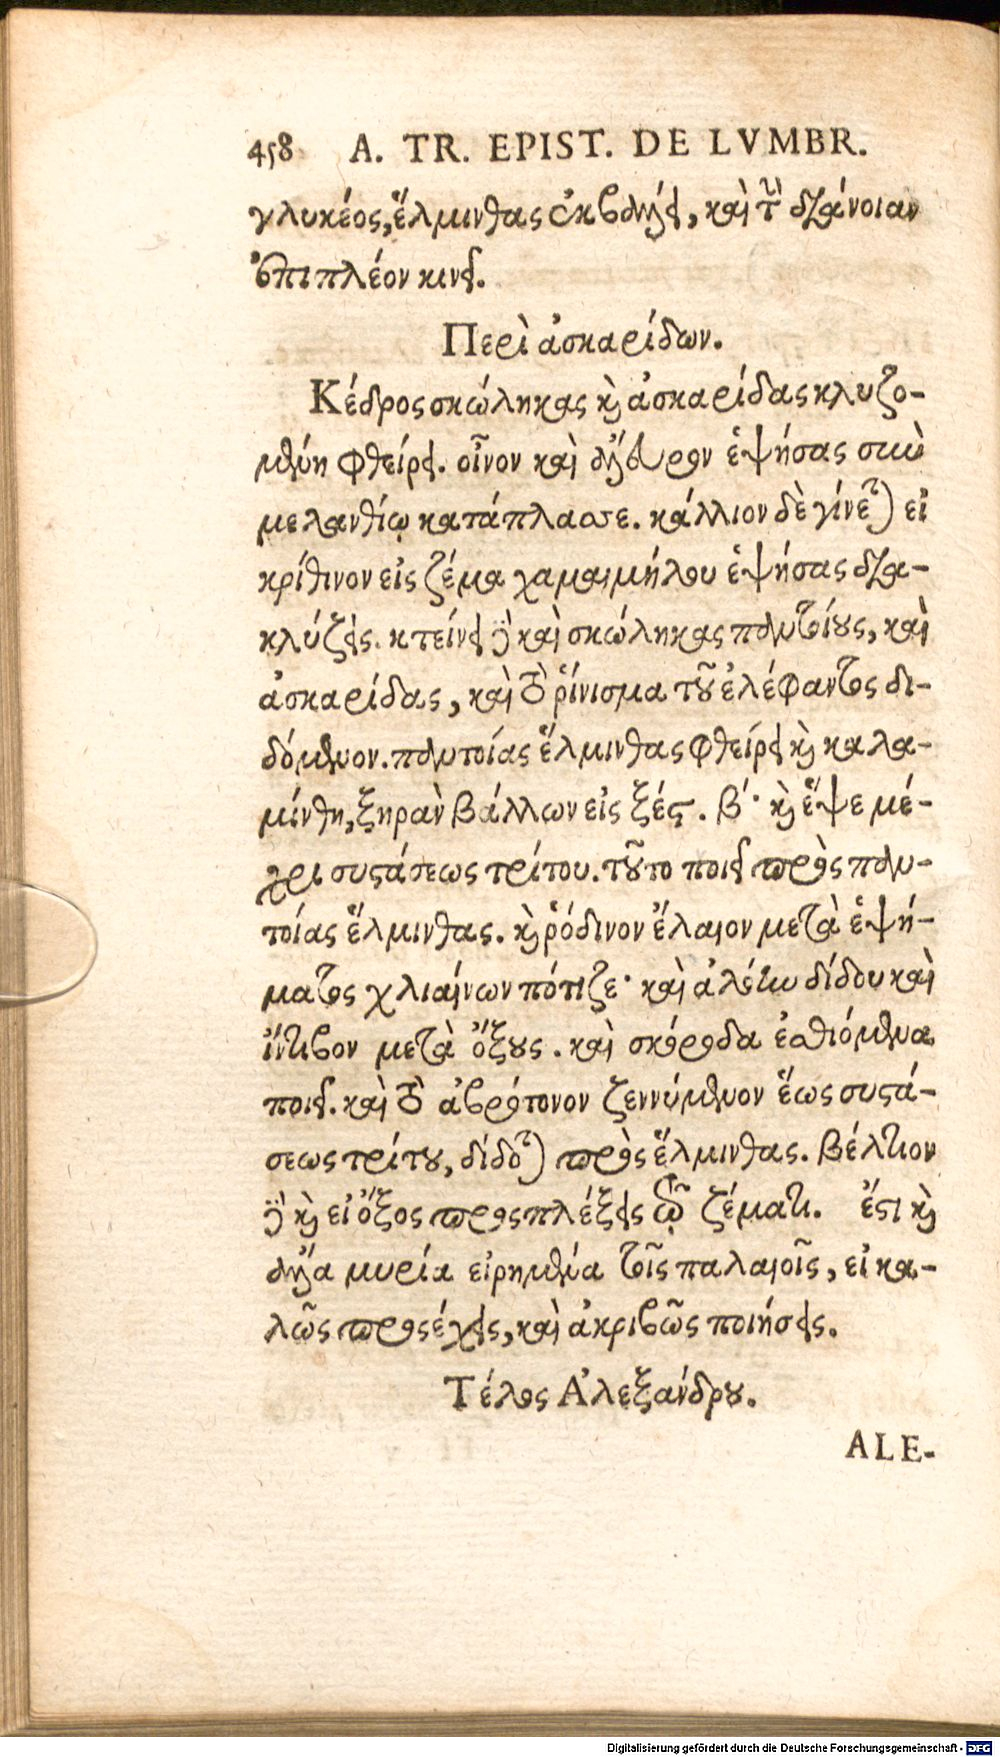 458 A. TR. EPIST. DE LVMBR.
γλυκέος, ἕλμινθας ἐκβάλλει, καὶ τὴν διάνοιαν
ἐπιπλέον κινεῖ.
Περὶ ἀσκαρίδων.
Κέδρος σκώληκας κỳ ἀσκαρίδας κλυζο-
μένη φθείρει. οἶνον καὶ ἄλευρον ἑψήσας σὺν
μελανθίῳ κατάπλασσε. κάλλιον δὲ γίνεται εἰ
κρίθινον εἰς ζέμα χαμαιμήλου ἑψήσας δια-
κλύζεις. κτείνει δὲ καὶ σκώληκας παντοίους, καὶ
ἀσκαρίδας, καὶ τὸ ῥίνισμα τοῦ ἐλέφαντος δι-
δόμενον. παντοίας ἕλμινθας φθείρει καὶ καλα-
μίνθη, ξηρὰν βάλλων εἰς ξές. β΄· καὶ ἕψε μέ-
χρι συστάσεως τρίτου. τοῦτο ποιεῖ πρὸς παν-
τοίας ἕλμινθας. καὶ ῥόδινον ἔλαιον μετὰ ἑψή-
ματος χλιαίνων πότιζε· καὶ ἀλόην δίδου καὶ
ἴντυβον μετὰ ὄξους. καὶ σκόροδα ἐσθιόμενα
ποιεῖ. καὶ τὸ ἀβρότονον ζεννύμενον ἕως συστά-
σεως τρίτου, δίδοται πρὸς ἕλμινθας. βέλτιον
δὲ καὶ εἰ ὄξος προςπλέξεις τῷ ζέματι. ἔστι καὶ
ἄλλα μυρία εἰρημένα τοῖς παλαιοῖς, εἰ κα-
λῶς προςέχεις, καὶ ἀκριβῶς ποιήσεις.
Τέλος Ἀλεξάνδρου.
ALE-
Digitalisierung gefördert durch die Deutsche Forschungsgemeinschaft - DFG